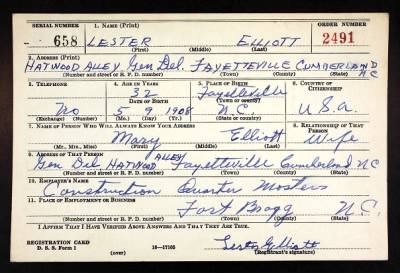 SERIAL NUMBER 1. NAME (Print) ORDER NUMBER
658 LESTER ELLIOTT 2491
(First) (Middle) (Last)
2. ADDRESS (Print)
HATWOOD ALLEY Gen Del. FAYETTEVILLE CUMBERLAND NC
(Number and street or R. F. D. number) (Town) (County) (State)
3. TELEPHONE 4. AGE IN YEARS 5. PLACE OF BIRTH 6. COUNTRY OF CITIZENSHIP
32 Fayetteville
DATE OF BIRTH (Town or county)
No 5 9 1908 N.C. U.S.A.
(Exchange) (Number) (Mo.) (Day) (Yr.) (State or country)
7. NAME OF PERSON WHO WILL ALWAYS KNOW YOUR ADDRESS 8. RELATIONSHIP OF THAT PERSON
Mary Elliott Wife
(Mr., Mrs., Miss) (First) (Middle) (Last)
9. ADDRESS OF THAT PERSON
Gen Del HATWOOD ALLEY Fayetteville Cumberland NC
(Number and street or R. F. D. number) (Town) (County) (State)
10. EMPLOYER'S NAME
Construction Quarter Masters
11. PLACE OF EMPLOYMENT OR BUSINESS
Fort Bragg N.C.
(Number and street or R. F. D. number) (Town) (County) (State)
I AFFIRM THAT I HAVE VERIFIED ABOVE ANSWERS AND THAT THEY ARE TRUE.
REGISTRATION CARD
D. S. S. Form 1 16—17105
(over) (Registrant's signature)